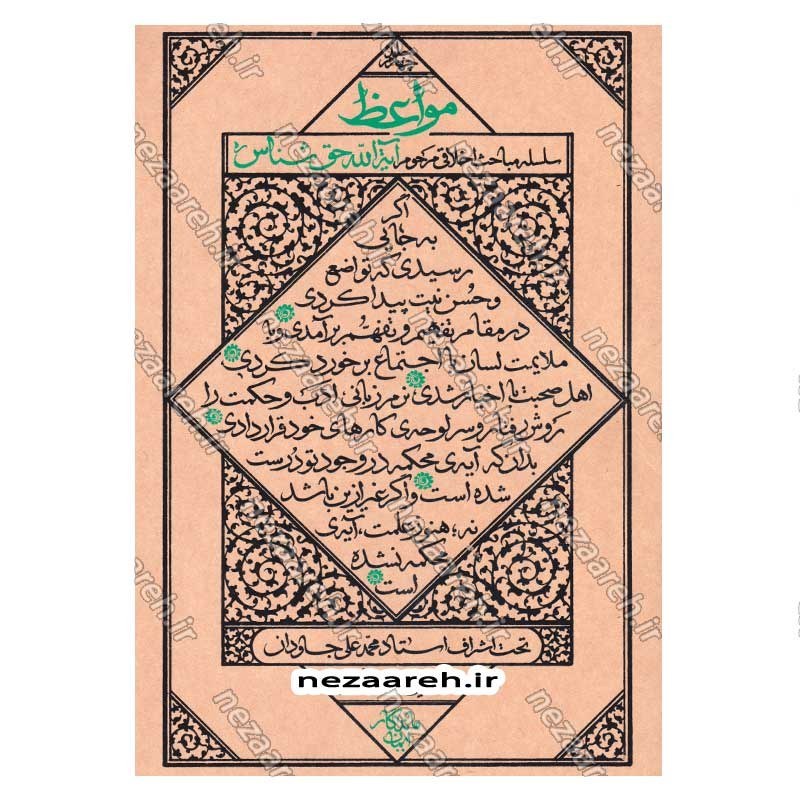 مواعظ
سلسله مباحث اخلاقی مرحوم آیة الله حق شناس
اگر
به جائی
رسیدی که تواضع
و حُسن نیت پیدا کردی
در مقام تفهیم و تفهّم برآمدی و با
ملایمت لسان با اجتماع برخورد کردی
اهل صحبت با اخیار شدی نرم زبانی ادب و حکمت را
روش رفتار و سرلوحه‌ی کارهای خود قراردادی
بدان که آیه‌ی محکمه در وجود تو درست
شده است و اگر غیر از این باشد
نه؛ هنوز علمت، آیه‌ی
محکمه نشده
است
تحت اشراف استاد محمد علی جاودان
nezaareh.ir
nezaareh.ir